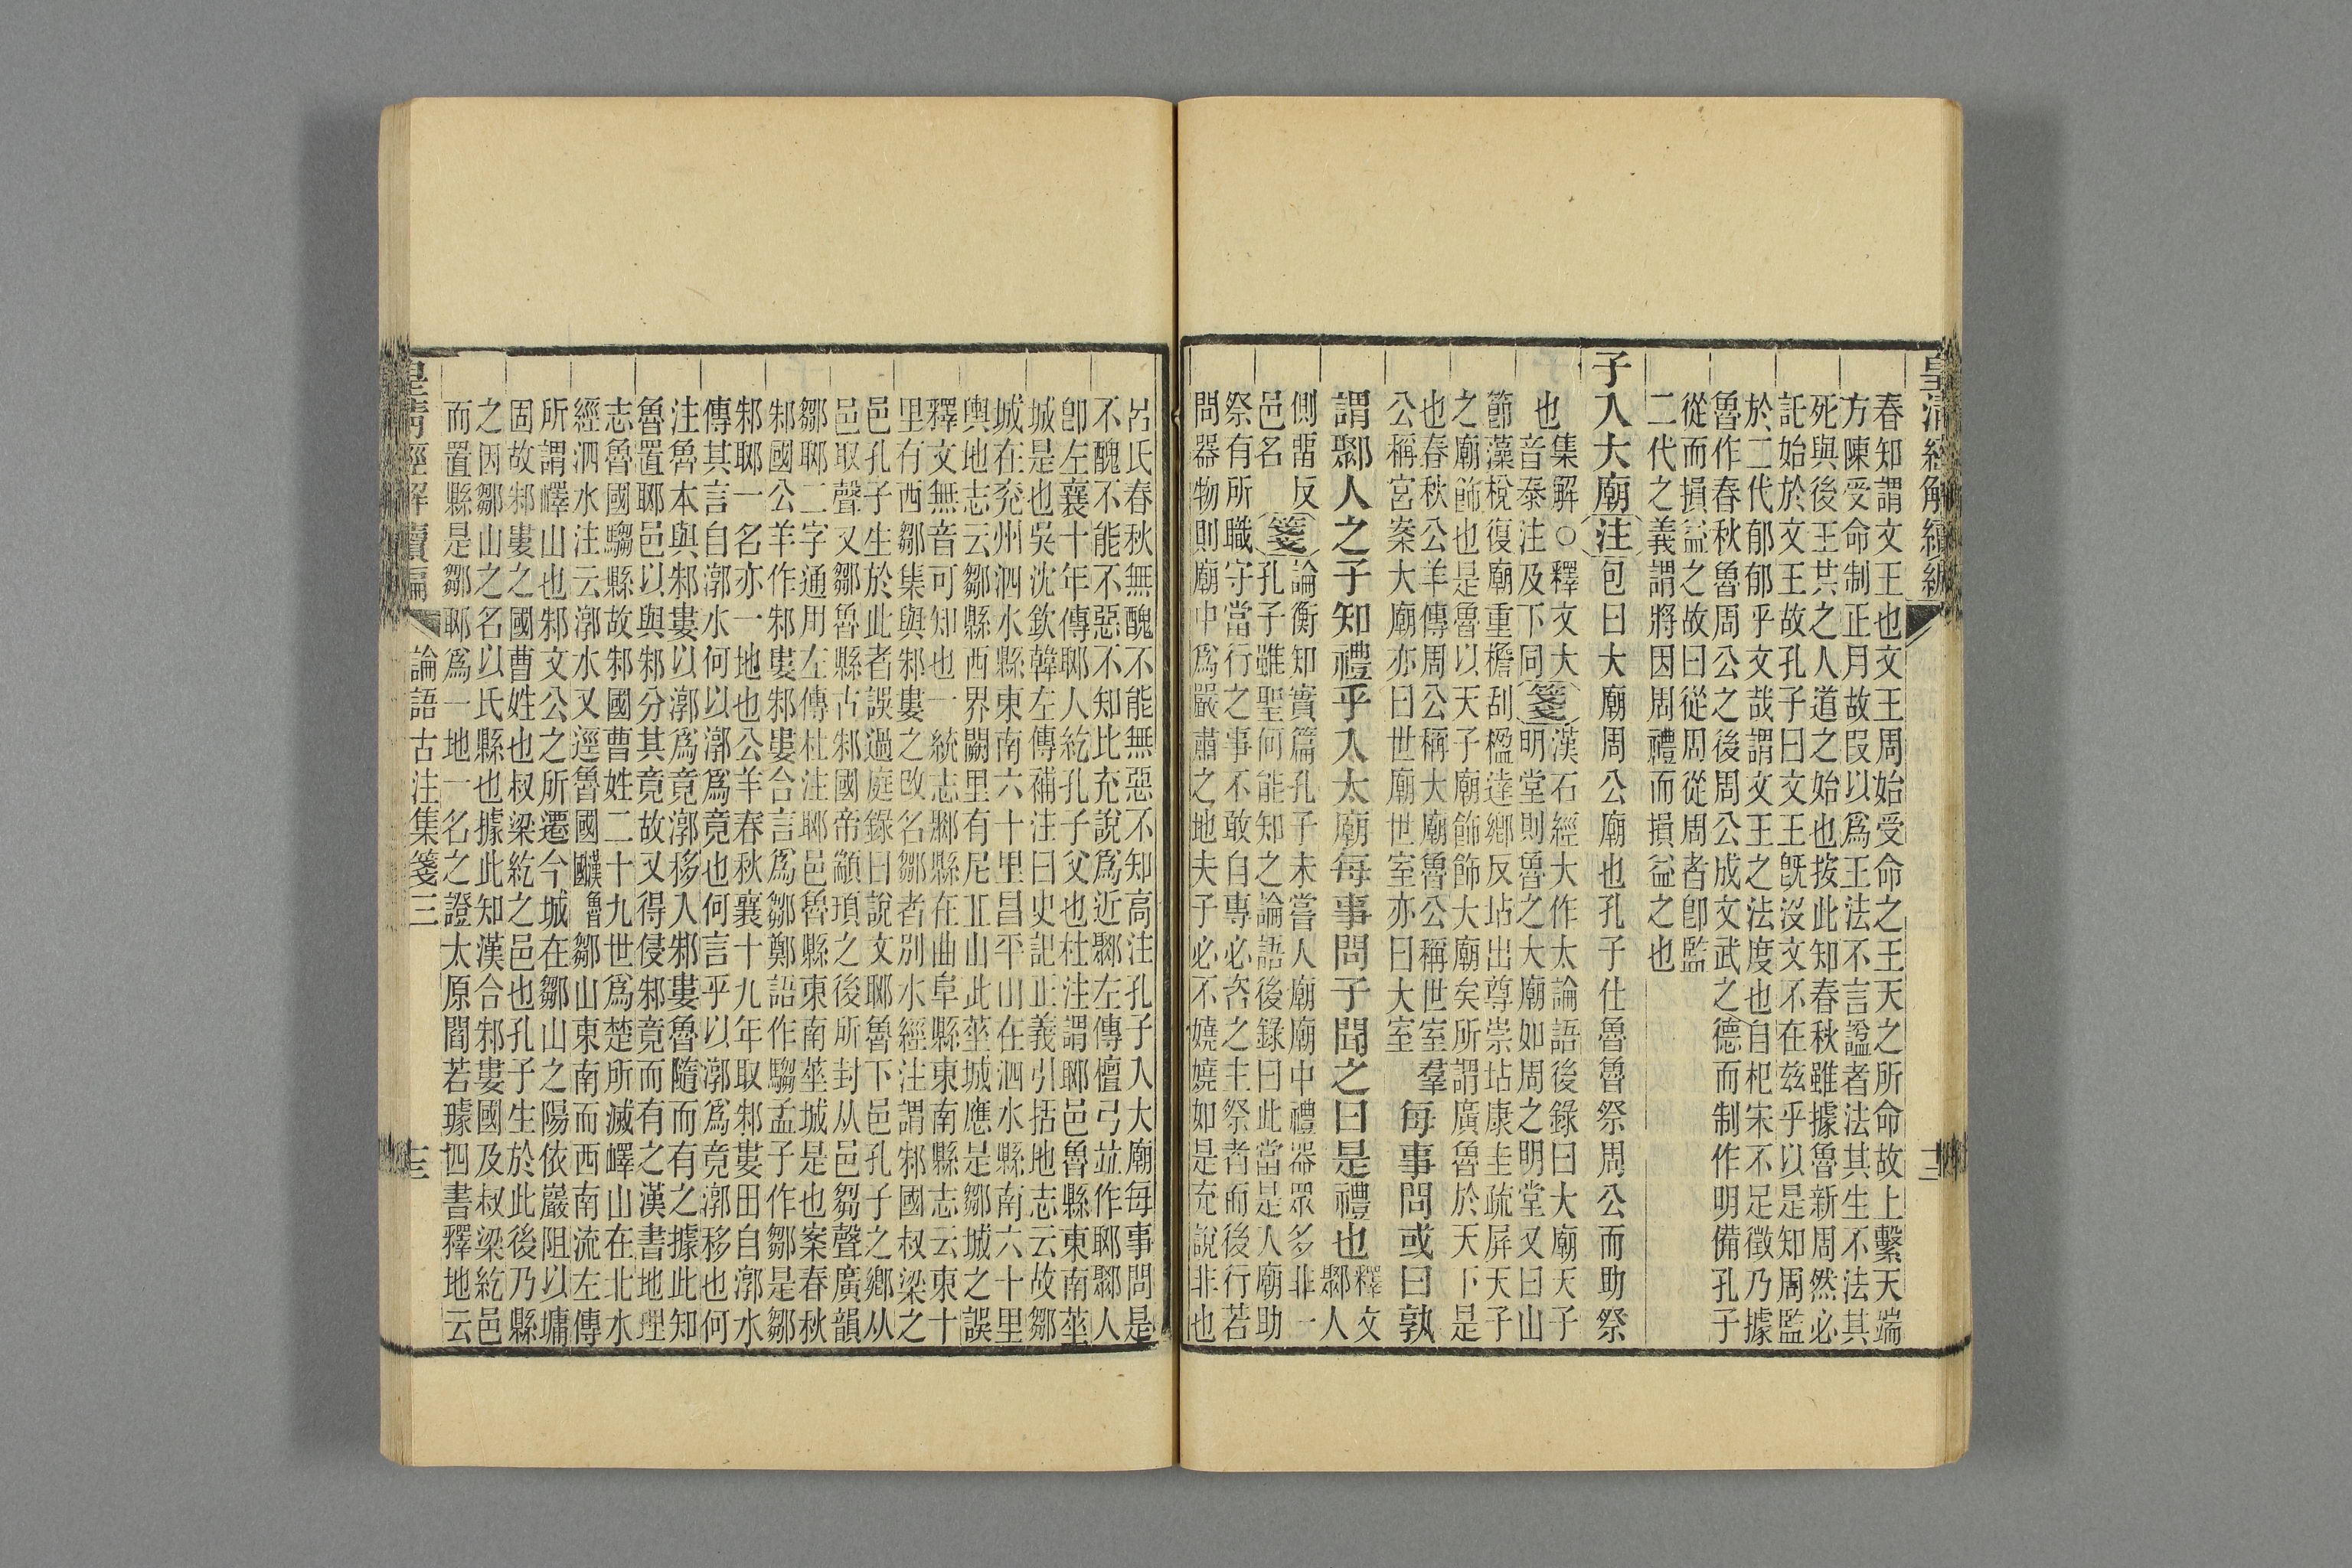 皇清經解續編
十二
春知謂文王也文王周始受命之王天之所命故上繫天端
方陳受命制正月故叚以爲王法不言諡者法其生不法其
死與後王共之人道之始也按此知春秋雖據魯新周然必
託始於文王故孔子曰文王旣沒文不在茲乎以是知周監
於二代郁郁乎文哉謂文王之法度也自杞宋不足徵乃據
魯作春秋魯周公之後周公成文武之德而制作明備孔子
從而損益之故曰從周從周者卽監
二代之義謂將因周禮而損益之也
子入大廟注包曰大廟周公廟也孔子仕魯魯祭周公而助祭
也
集解○釋文大
音泰注及下同
箋
漢石經大作太論語後錄曰大廟天子
明堂則魯之大廟如周之明堂又曰山
節藻梲復廟重檐刮楹達鄉反坫出尊崇坫康圭疏屏天子
之廟飾也是魯以天子廟飾飾大廟矣所謂廣魯於天下是
也春秋公羊傳周公稱大廟魯公稱世室羣
公稱宮案大廟亦曰世廟世室亦曰大室
每事問或曰孰
謂鄹人之子知禮乎入太廟每事問子聞之曰是禮也
釋文
鄹人
側畱反
邑名
箋
論衡知實篇孔子未嘗人廟廟中禮器眾多非一
孔子雖聖何能知之論語後錄曰此當是人廟助
祭有所職守當行之事不敢自專必咨之主祭者而後行若
問器物則廟中爲嚴肅之地夫子必不嬈嬈如是充說非也
呂氏春秋無醜不能無惡不知高注孔子入大廟每事問是
不醜不能不惡不知比充說爲近鄹左傳檀弓並作郰鄹人
卽左襄十年傳郰人紇孔子父也杜注謂郰邑魯縣東南莝
城是也吳沈欽韓左傳補注曰史記正義引括地志云故鄒
城在兗州泗水縣東南六十里昌平山在泗水縣南六十里
輿地志云鄒縣西界闕里有尼丘山此莝城應是鄒城之誤
釋文無音可知也一統志鄹縣在曲阜縣東南縣志云東十
里有西鄒集與邾婁之改名鄒者別水經注謂邾國叔梁之
邑孔子生於此者誤過庭錄曰說文郰魯下邑孔子之鄉从
邑取聲又鄒魯縣古邾國帝顓頊之後所封从邑芻聲廣韻
鄒郰二字通用左傳杜注郰邑魯縣東南莝城是也案春秋
邾國公羊作邾婁邾婁合言爲鄒鄭語作騶孟子作鄒是鄒
邾郰一名亦一地也公羊春秋襄十九年取邾婁田自漷水
傳其言自漷水何以漷爲竟也何言乎以漷爲竟漷移也何
注魯本與邾婁以漷爲竟漷移入邾婁魯隨而有之據此知
魯置郰邑以與邾分其竟故又得侵邾竟而有之漢書地理
志魯國騶縣故邾國曹姓二十九世爲楚所滅嶧山在北水
經泗水注云漷水又逕魯國
漢魯國
鄒山東南而西南流左傳
所謂嶧山也邾文公之所遷今城在鄒山之陽依巖阻以墉
固故邾婁之國曹姓也叔梁紇之邑也孔子生於此後乃縣
之因鄒山之名以氏縣也據此知漢合邾婁國及叔梁紇邑
而置縣是鄒郰爲一地一名之證太原閻若璩四書釋地云
皇清經解續編
論語古注集箋三
十三